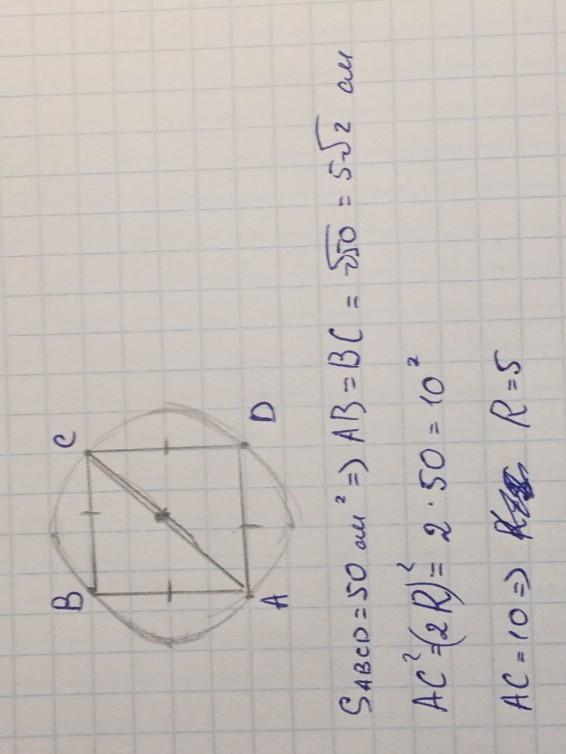 B C
A D
S ABCD = 50 см² => AB = BC = √50 = 5√2 см
AC² = (2R)² = 2 · 50 = 10²
AC = 10 => R = 5